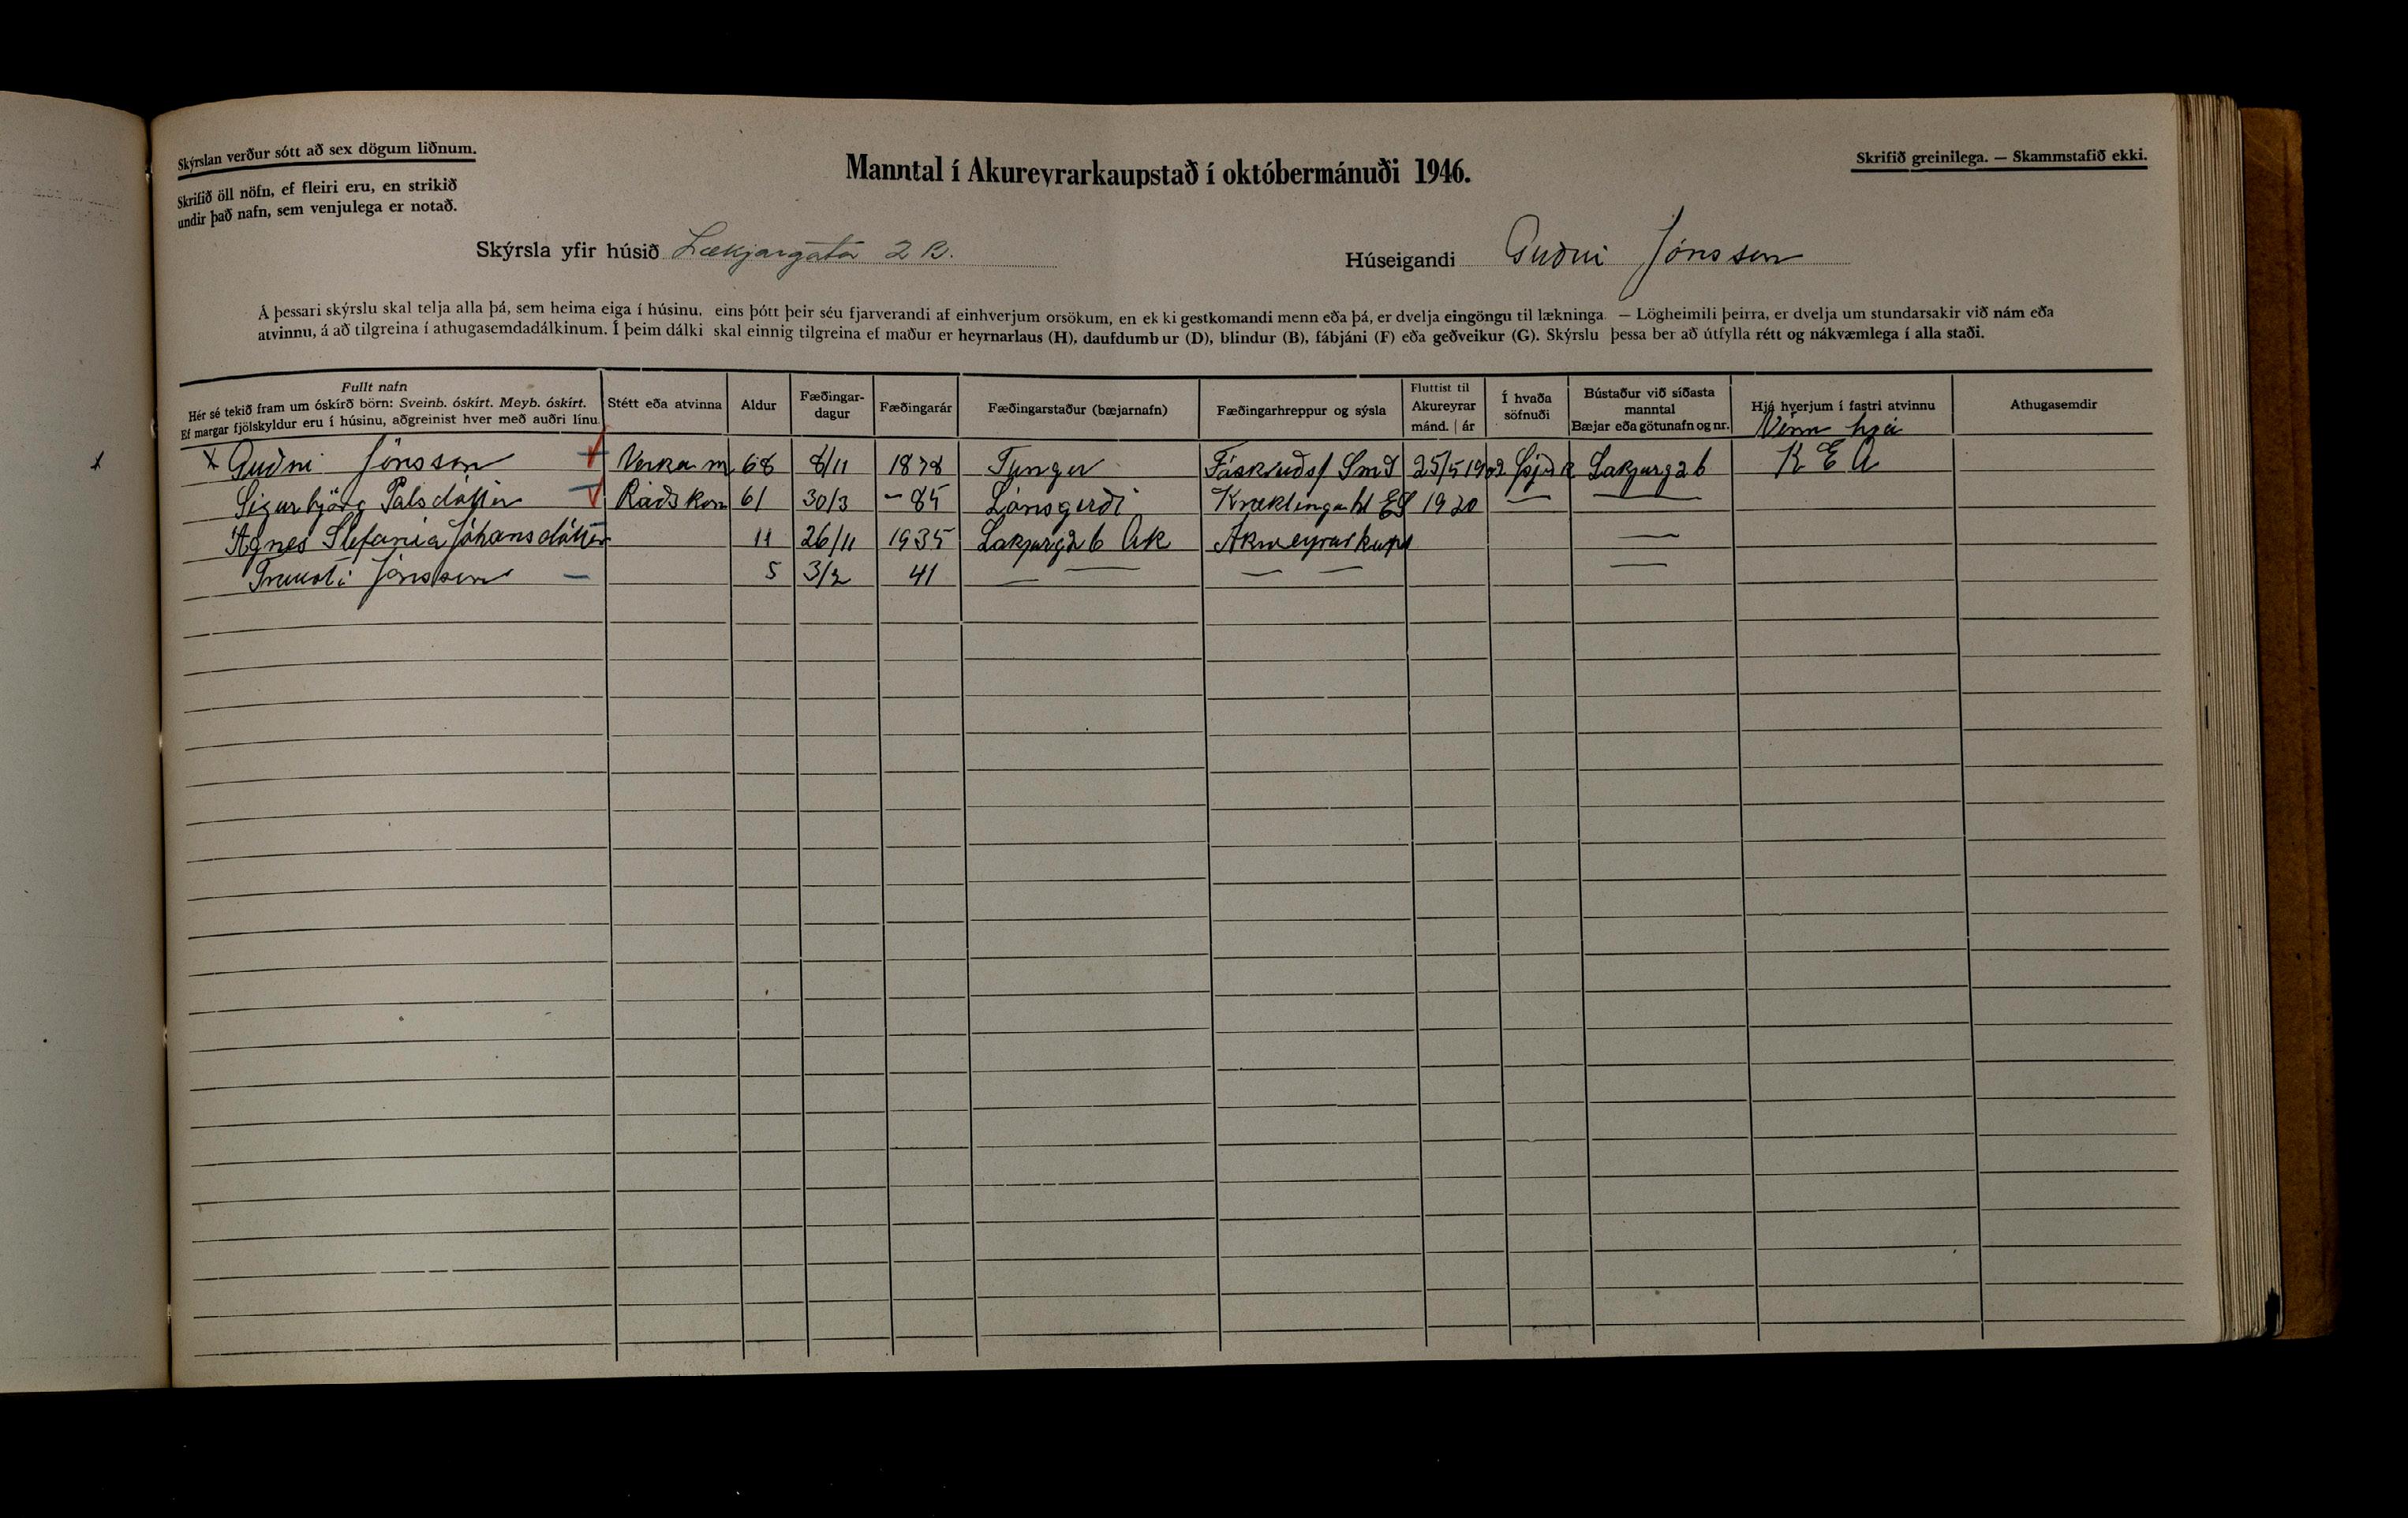 Skýrslan verður sótt að sex dögum liðnum.
Skrifið öll nöfn, ef fleiri eru, en strikið
undir það nafn, sem venjulega er notað.
Manntal í Akureyrarkaupstað í októbermánuði 1946.
Skrifið greinilega. — Skammstafið ekki.
Skýrsla yfir húsið Lækjargata 2 B.
Húseigandi Guðni Jónsson
Á þessari skýrslu skal telja alla þá, sem heima eiga í húsinu, eins þótt þeir séu fjarverandi af einhverjum orsökum, en ekki gestkomandi menn eða þá, er dvelja eingöngu til lækninga. — Lögheimili þeirra, er dvelja um stundarsakir við nám eða
atvinnu, á að tilgreina í athugasemdadálkinum. Í þeim dálki skal einnig tilgreina ef maður er heyrnarlaus (H), daufdumbur (D), blindur (B), fábjáni (F) eða geðveikur (G). Skýrslu þessa ber að útfylla rétt og nákvæmlega í alla staði.
Fullt nafn
Hér sé tekið fram um óskírð börn: Sveinb. óskírt. Meyb. óskírt.
Ef margar fjölskyldur eru í húsinu, aðgreinist hver með auðri línu.
Stétt eða atvinna
Aldur
Fæðingar-
dagur
Fæðingarár
Fæðingarstaður (bæjarnafn)
Fæðingarhreppur og sýsla
Fluttist til
Akureyrar
mánd. | ár
Í hvaða
söfnuði
Bústaður við síðasta
manntal
Bæjar eða götunafn og nr.
Hjá hverjum í fastri atvinnu
Vinn hjá
Athugasemdir
x Guðni Jónsson Verkam 68 8/11 1878 Tungu Fáskrúðsf SmS 25/5 1902 Þjóðk Lækjarg 2 b K E A
Sigurbjörg Pálsdóttir Ráðskon 61 30/3 – 85 Lónsgerði Kræklingahl Ef 1920 —
Agnes Stefanía Jóhansdóttir 11 26/11 1935 Lækjarg 2 b Ak Akureyrarkaups —
Jónsson 5 3/2 41 — — — — —